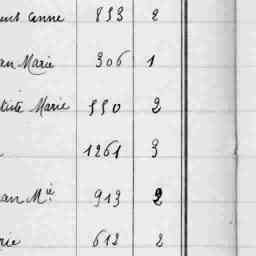 Anne 853 2
an Marie 306 1
tiste Marie 550 2
1261 3
an Mie 913 2
rie 612 2